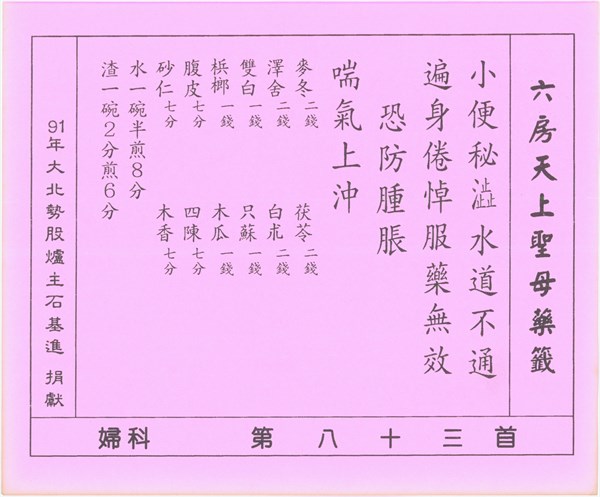 六房天上聖母藥籤
小便秘澁水道不通
遍身倦悼服藥無效
恐防腫脹
喘氣上沖
麥冬二錢 茯苓二錢
澤舍二錢 白朮二錢
雙白一錢 只蘇一錢
梹榔一錢 木瓜一錢
腹皮七分 四陳七分
砂仁七分 木香七分
水一碗半煎8分
渣一碗2分煎6分
91年大北勢股爐主石基進 捐獻
婦科 第八十三首